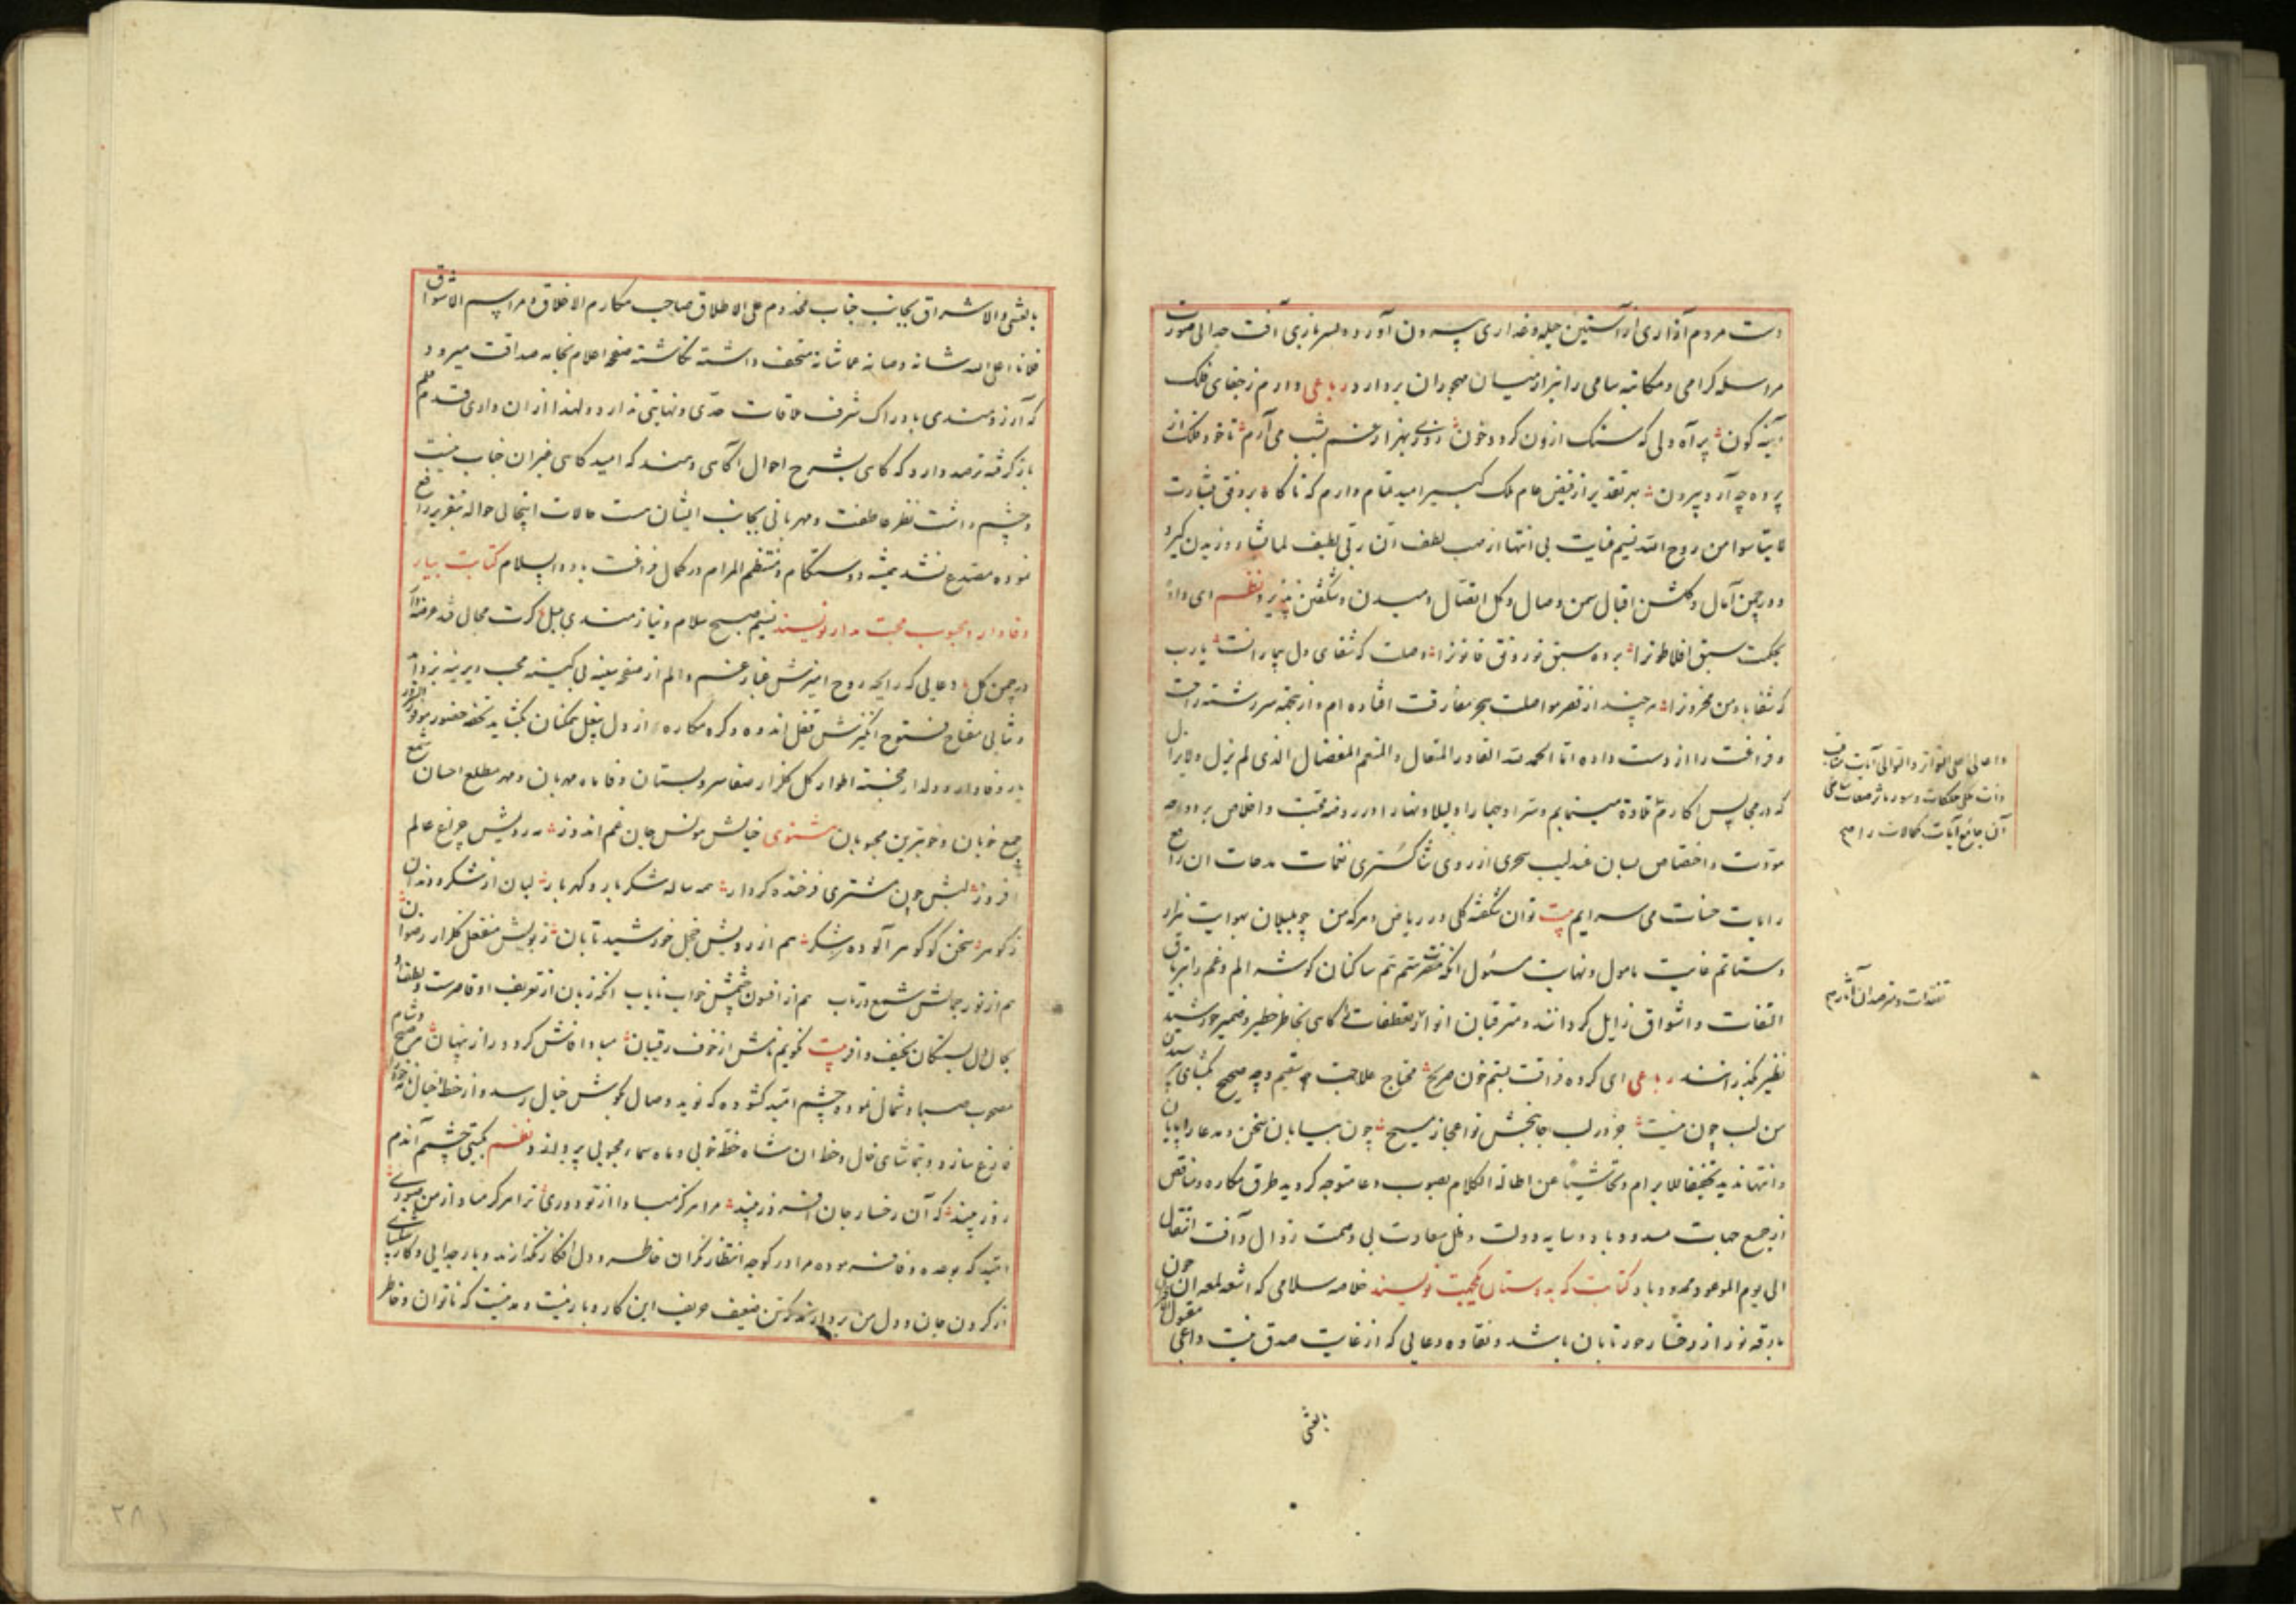 دست مردم آزاری از آستین حیله و غداری بیرون آورده بسربازی آفت جدائی صورت
مراسله کرامی و مکاتبه سامی را نیز از میان مهجوران بردارد رباعی دارم ز جفای فلک
آینه کون پر آه دلی که سنک ازون کردد خون روزی بهزار غم بشب می آرم تا خود فلک از
پرده چه آرد بیرون بهر تقدیر از فیض عام ملک کبیر امید تمام دارم که ناکاه بروفق بشارت
لا تیاسوا من روح الله نسیم عنایت بی انتها از مهب لطف ان ربی لطیف لما یشاء وزیدن کیرد
و در چمن آمال و کلشن اقبال سمن وصال و کل اتصال دمیدن و شکفتن پذیرد نظم ای داده
بحکمت سبق افلاطونرا برده سبق
وصلت که شفای دل بیمارانست یارب
که شفا باد من محزونرا هر چند از قصر مواصلت بحر مفارقت افتاده ام و از پنجه سررشته راحت
و فراغت را از دست داده اما الحمد لله القادر المتعال و المنعم المفضال الذی لم یزل ولا یزال
که در مجالس اکارم تلاوة مینمایم و سرا و جهارا و لیلا و نهارا در روضه محبت و اخلاص و دوحه
مودت و اختصاص بسان عندلیب سحری از روی ثنا کستری نغمات مدحات ان رافع
رایات حسنات می سرایم بیت توان شکفته کلی در ریاض دهر که من چو بلبلان بهوایت هزار
دستانم غایت مامول و نهایت مسئول انکه ساکنان کوشه الم و غم را بتریاق
التفات و اشواق زایل کردانند و مترقبان انوار تعطفات کاهی بخاطر خطیر و ضمیر خورشید
نظیر بکذرانند رباعی ای کرده فراقت بتنم خون صریح محتاج علاجت چه سقیم و چه صحیح بکشای
من لب چون نیست جز در لب جانبخش تو اعجاز مسیح چون بیابان سخن و مدعا را پایان
و انتها ندید تخفیفا للابرام و تحاشیا عن اطالة الکلام بصوب دعا متوجه کردید طرق مکاره و نقائص
از جمیع جهات مسدود باد و سایه دولت و ظل سعادت بی وصمت زوال و آفت انتقال
الی یوم الموعود ممدود باد کتابت که بدوستان یکجهت نویسند خلاصه سلامی که اشعه لمعه ان چون
بارقه نور از رخسار حور تابان باشد و نقاوه دعایی که از غایت صدق نیت داعی مقبول
بالعشی
آن جامع آیات کمالات را
بالعشی و الاشراق بجانب جناب مخدوم علی الاطلاق صاحب مکارم الاخلاق و مراسم الاشواق
فلانا اعلی الله شانه و صانه عما شانه متحف داشته نکاشته صفحه اعلام بخامه صداقت میرود
که آرزومندی بادراک شرف ملاقات حدی و نهایتی ندارد و لهذا از ان وادی قدم قلم
باز کرفته ترصد دارد که کاهی بشرح احوال آکاهی دهند که امید کاهی غیر ان جناب نیست
و چشم داشت نظر عاطفت و مهربانی بجانب ایشان ست حالات اینجائی حواله بتقریر رافع
نموده مصدع نشد همیشه دوستکام و منتظم المرام در کمال فراغت باد والسلام کتابت بیار
وفادار و محبوب محبت مدار نویسند نسیم صبح سلام و نیازمندی بلبل
در چمن کل دعایی که رایحه روح امیزش غبار غم و الم از صفحه سینه بی کینه محب دیرینه بزداید
و ثنایی مفتاح فتوح انکیزش قفل اندوه و کره مکاره از دل بیغل بکشاید تحفه حضور موفور السرور
یار وفادار و دلدار خجسته اطوار کل کلزار صفا سرو بستان وفا ماه مهربان و مهر مطلع احسان شمع
جمع خوبان و خوبترین محبوبان مثنوی خیالش مونس جان غم اندوز رویش چراغ عالم
افروز لبش چون مشتری فرخنده کردار همه ساله شکر بار و کهر بار لبان از شکر و دندان
ز کوهر سخن کو کوهر آلوده شکر هم از رویش خجل خورشید تابان ز بویش منفعل کلزار رضوان
هم از نور جمالش شمع در تاب هم از افسون چشمش خواب نایاب انکه زبان از تعریف او قاصرست و لطف او
بحال دل بستکان وافر بیت نکویم نامش از خوف رقیبان مبادا فاش کردد راز پنهان هر صبح و شام
مصحوب صبا و شمال نموده چشم امید کشوده که نوید وصال بکوش خیال رسد و از خطا خیال
فارغ سازد و بتماشای خال و خط ان شاه خطه خوبی و ماه سماء محبوبی پردازد نظم کیتی چشم آندم
روز بیند که آن رخسار جان افروز بیند مرا هرکز مبادا از تو دوری ترا هرکز مباد از من صبوری
امید که بوعده وفا نموده مرا در کوچه انتظار نکران خاطر و دل افکار نکذارند و بار جدایی و کار
از کردن جان و دل من بردارند که تن ضعیف حریف این کار و بار نیست و مدتیست که ناتوان و خاطر
۲۸